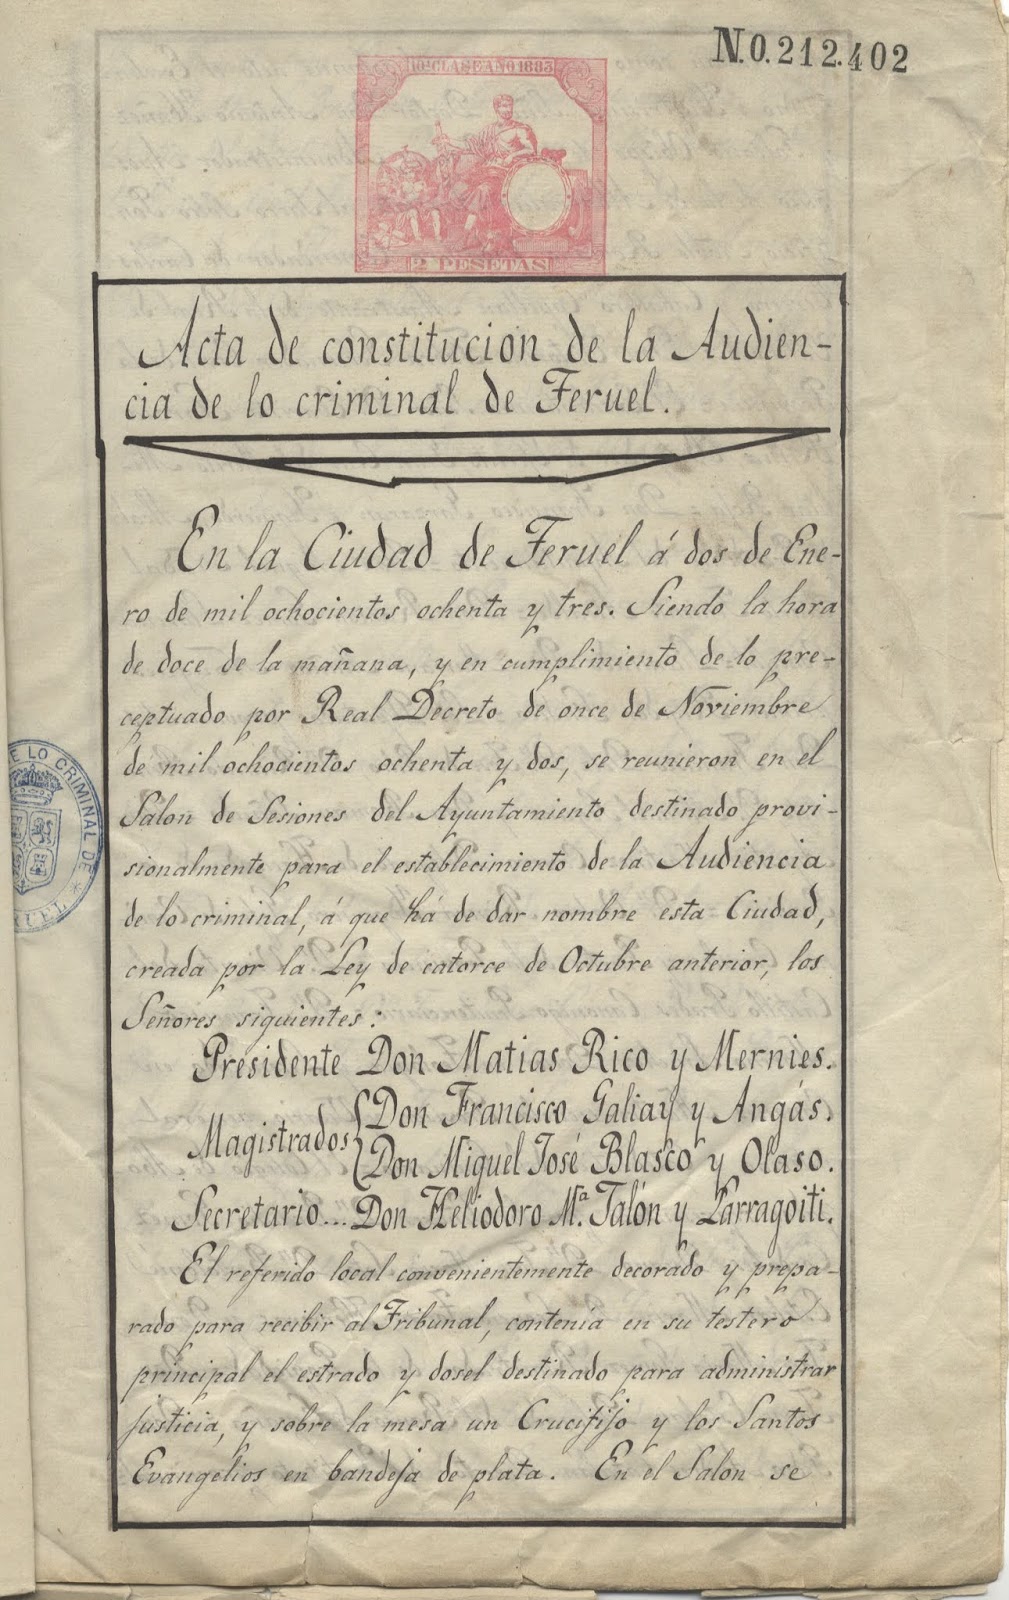 N.0.212.402
10ª CLASE AÑO 1883
2 PESETAS
Acta de constitucion de la Audien-
cia de lo criminal de Teruel.
En la Ciudad de Teruel á dos de Ene-
ro de mil ochocientos ochenta y tres. Siendo la hora
de doce de la mañana, y en cumplimiento de lo pre-
ceptuado por Real Decreto de once de Noviembre
de mil ochocientos ochenta y dos, se reunieron en el
Salon de Sesiones del Ayuntamiento destinado provi-
sionalmente para el establecimiento de la Audiencia
de lo criminal, á que há de dar nombre esta Ciudad,
creada por la Ley de catorce de Octubre anterior, los
Señores siguientes:
Presidente Don Matias Rico y Mernies.
Magistrados { Don Francisco Galiay y Angás.
Don Miguel José Blasco y Olaso.
Secretario... Don Heliodoro Mª Jalón y Larragoiti.
El referido local convenientemente decorado y prepa-
rado para recibir al Tribunal, contenía en su testero
principal el estrado y dosel destinado para administrar
justicia, y sobre la mesa un Crucifijo y los Santos
Evangelios en bandeja de plata. En el Salon se
E LO CRIMINAL DE
RUEL